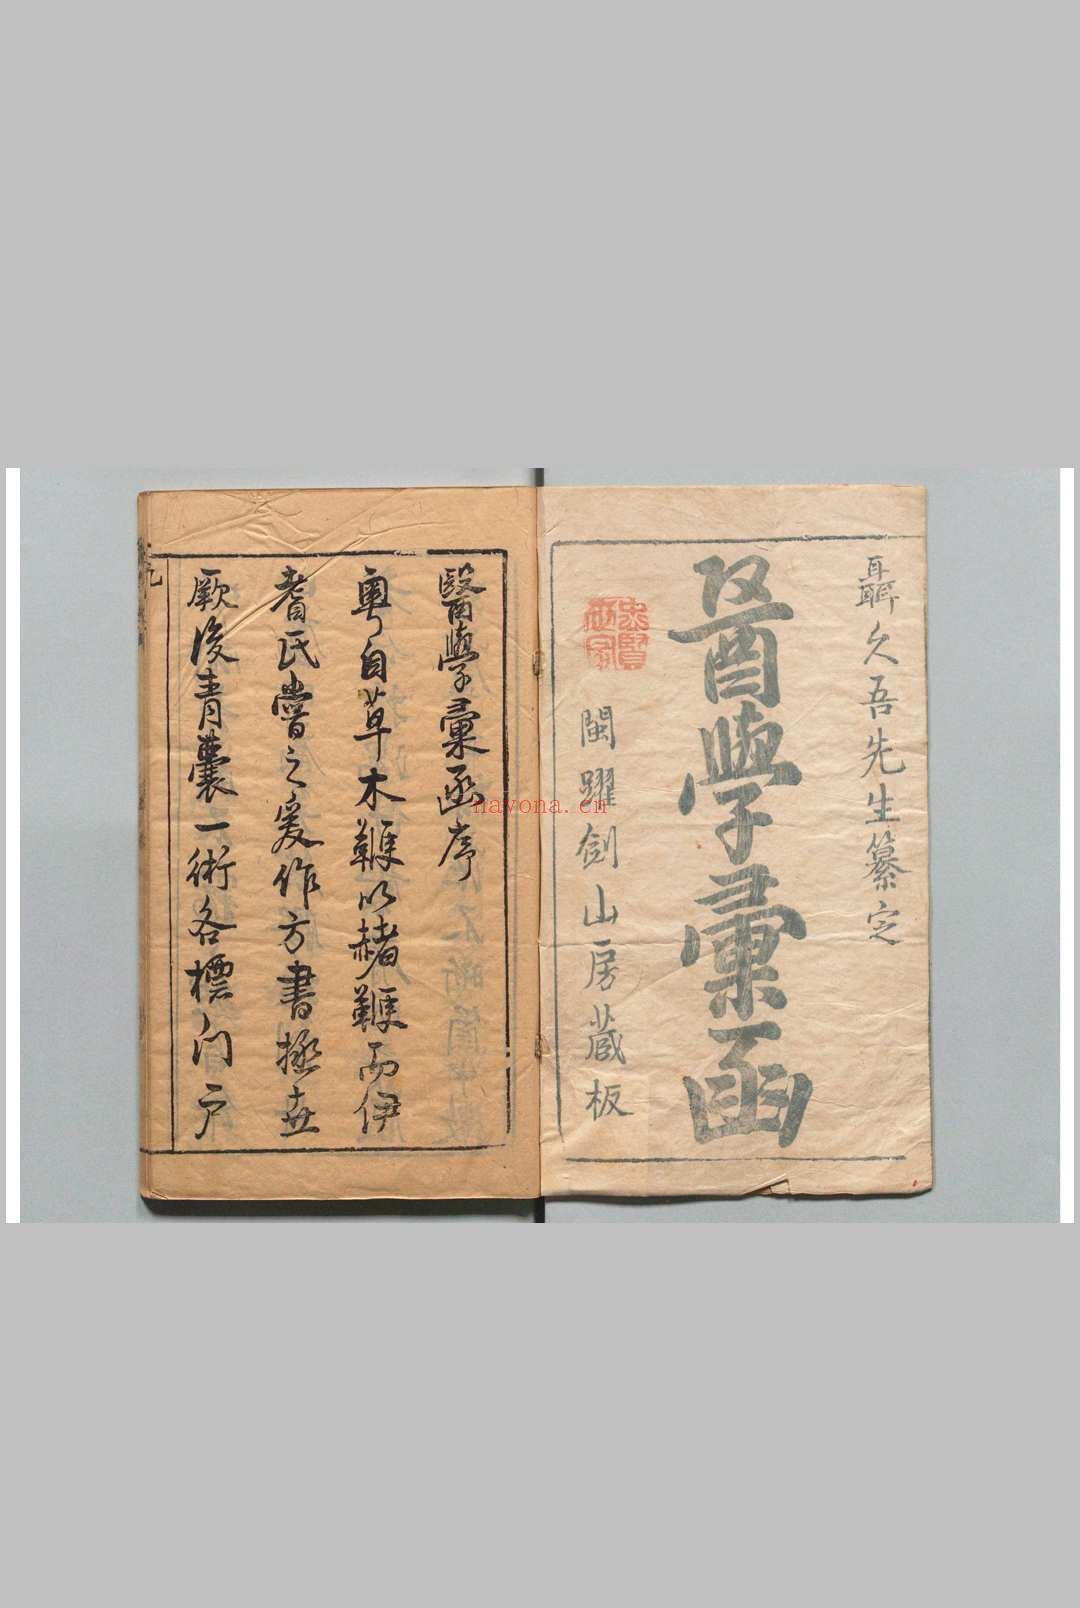 聶久吾先生纂定
醫學彙函
閩躍劍山房蔵板
醫學彙函序
粵自草木鞭以赭鞭而伊
耆氏嘗之爰作方書拯世
厥後青囊一術各標门户
nayona.cn